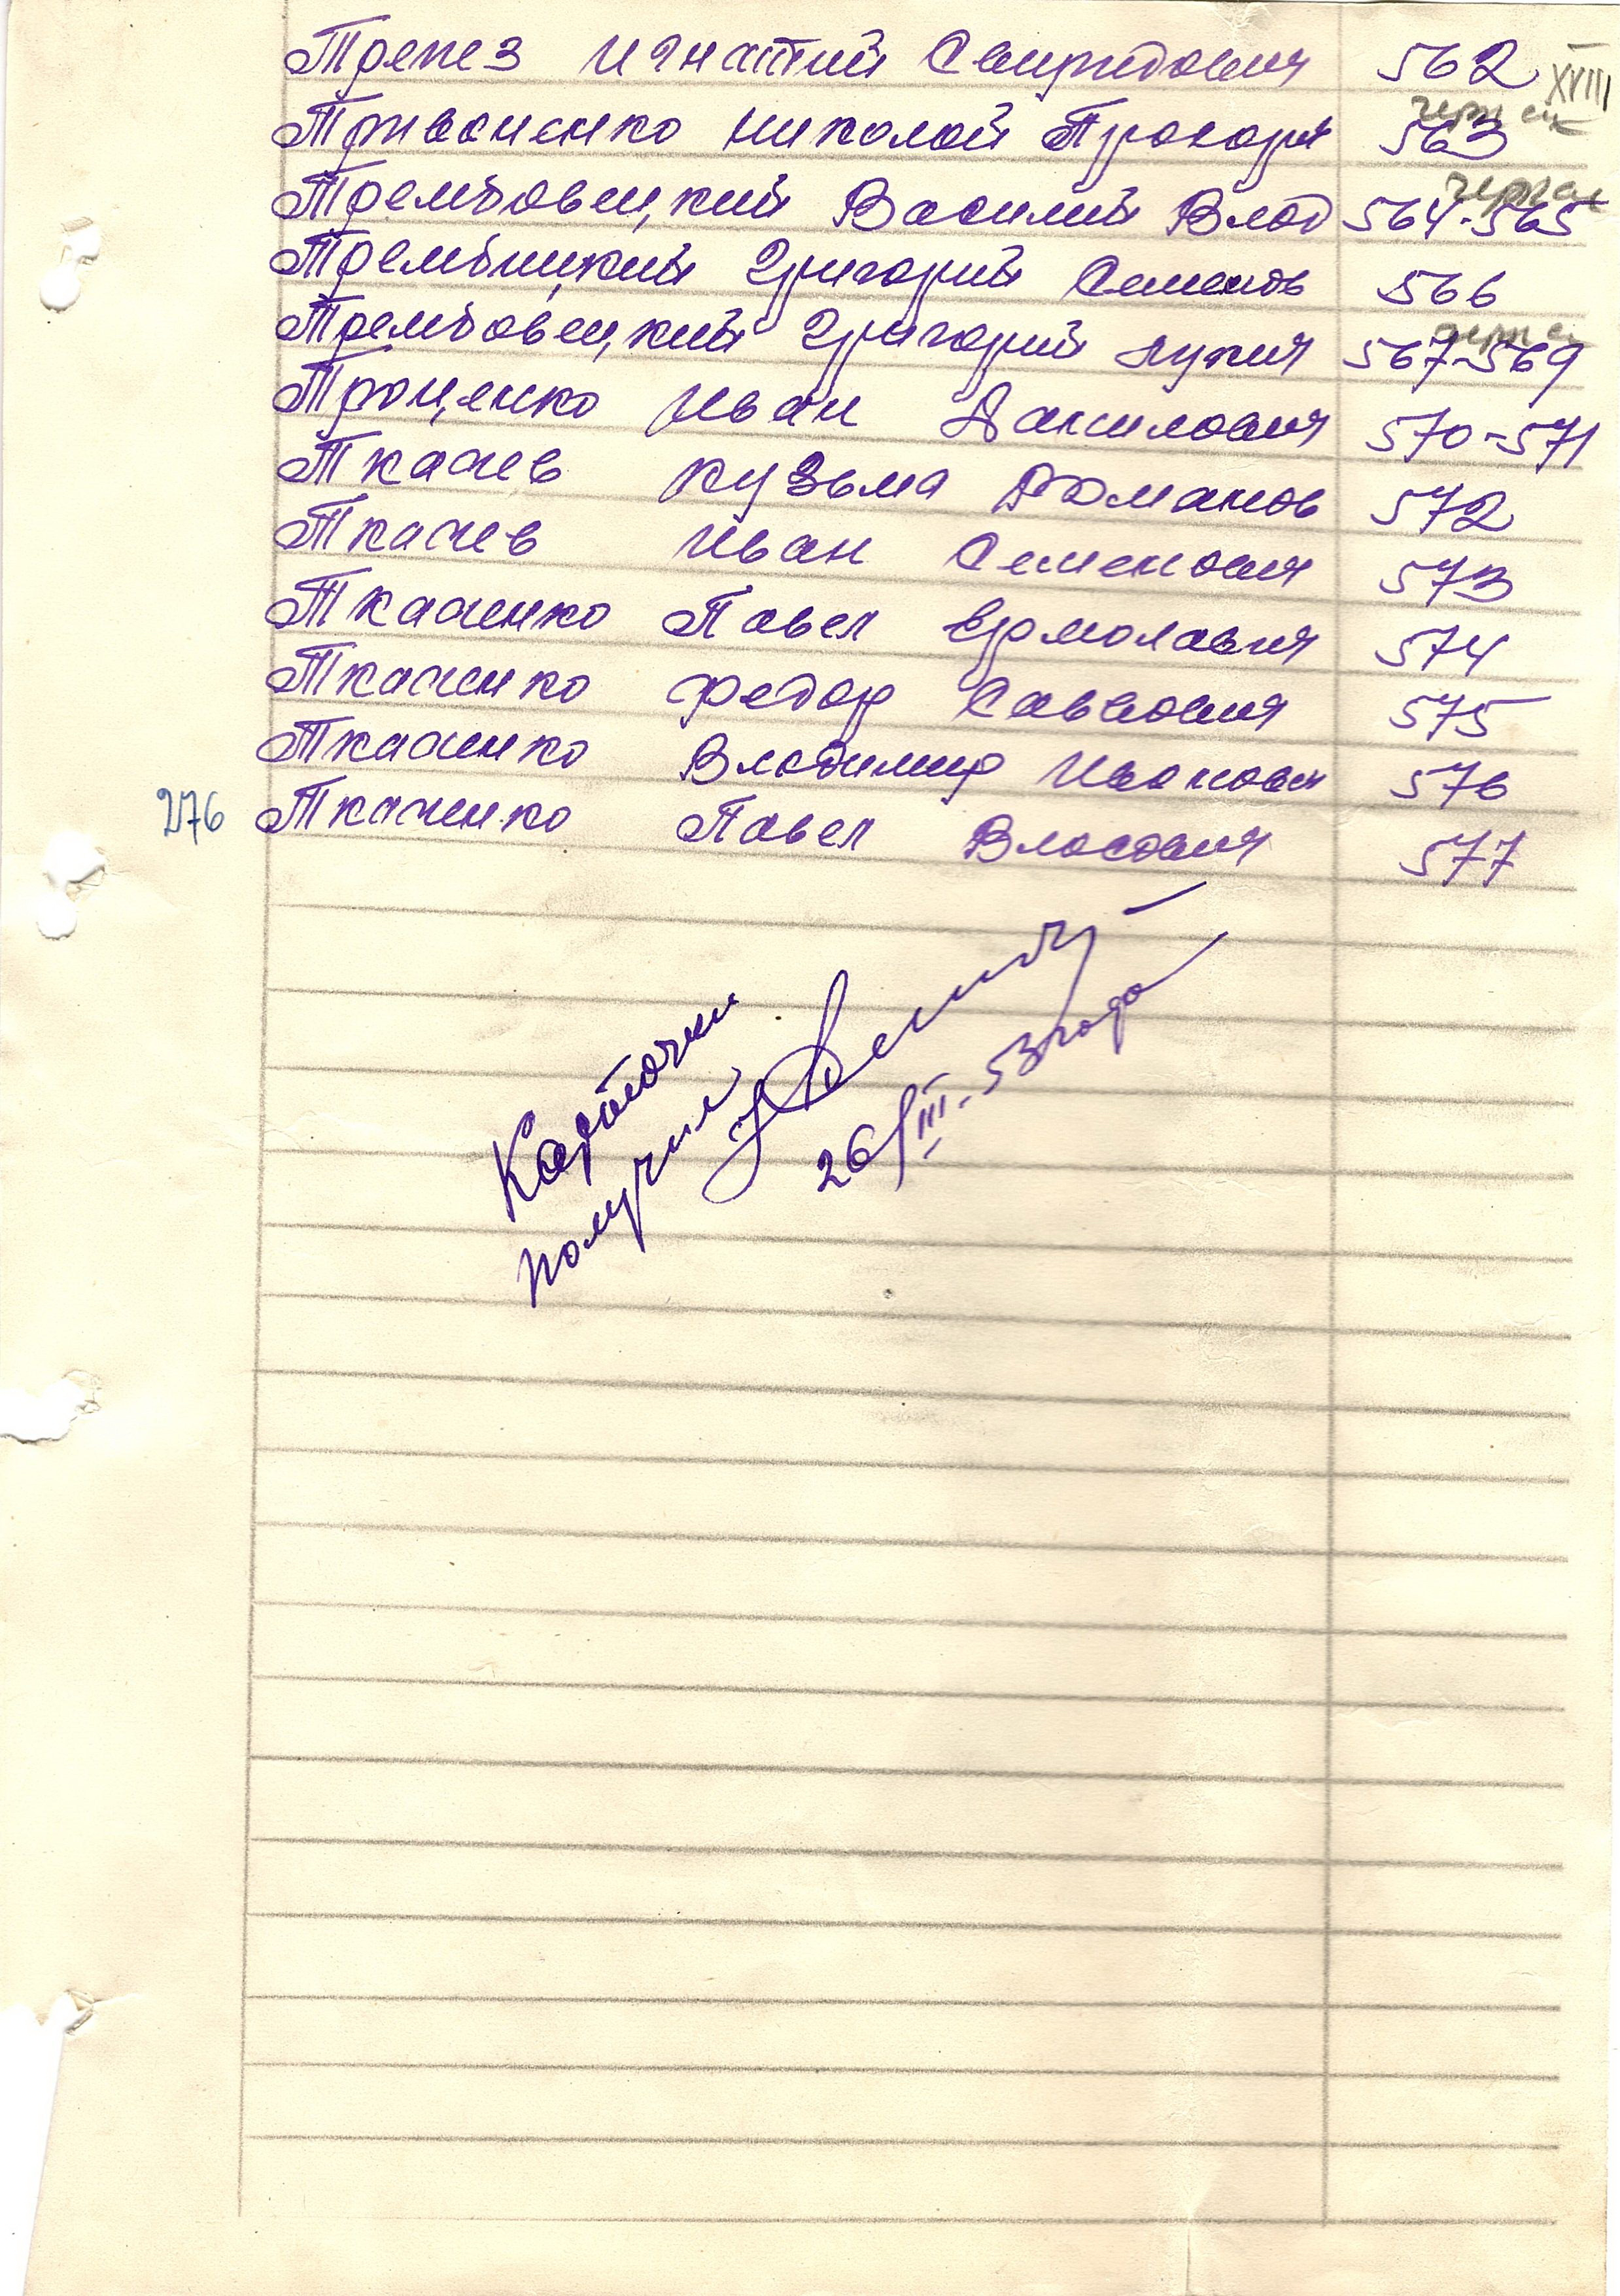 Трепез Игнатий Свиридович 562
XVIII
Привоненко Николай Прохорч 563
Трембовецкий Василий Влад 564-565
Трембицкий Григорий Семенов 566
Трембовецкий Григорий Лукич 567-569
Троценко Иван Данилович 570-571
Ткачев Кузьма Романов 572
Ткачев Иван Семенович 573
Ткаченко Павел Ермолаевич 574
Ткаченко Федор Саввович 575
Ткаченко Владимир Иванович 576
276 Ткаченко Павел Власович 577
Карточки
получил
26/III-53 года